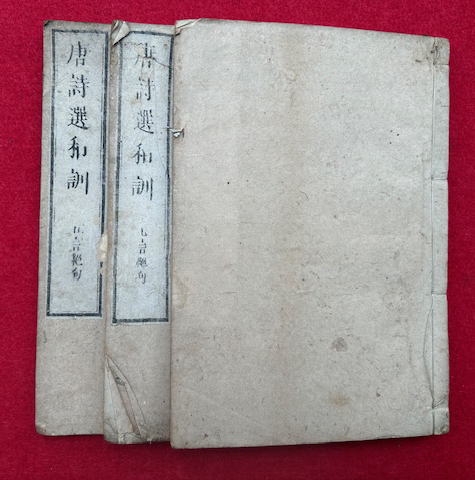 唐詩選和訓
五言絶句
唐詩選和訓
七言絶句